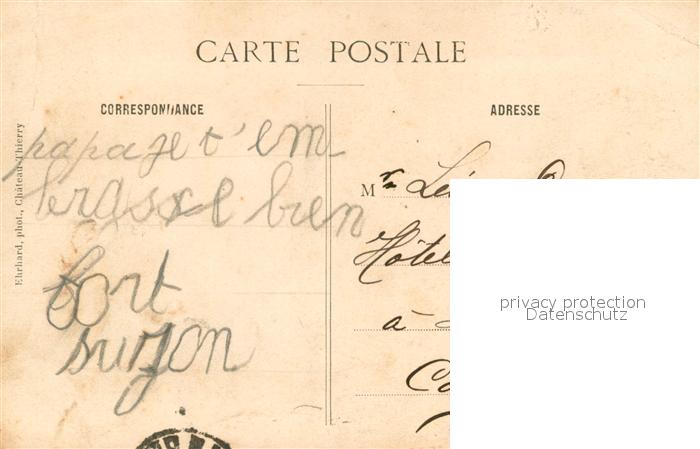 CARTE POSTALE
CORRESPONDANCE
ADRESSE
Ehrhard, phot., Château-Thierry
papa je t'em-
brasse bien
fort
suzon
Mr
Hôtel
à
privacy protection
Datenschutz